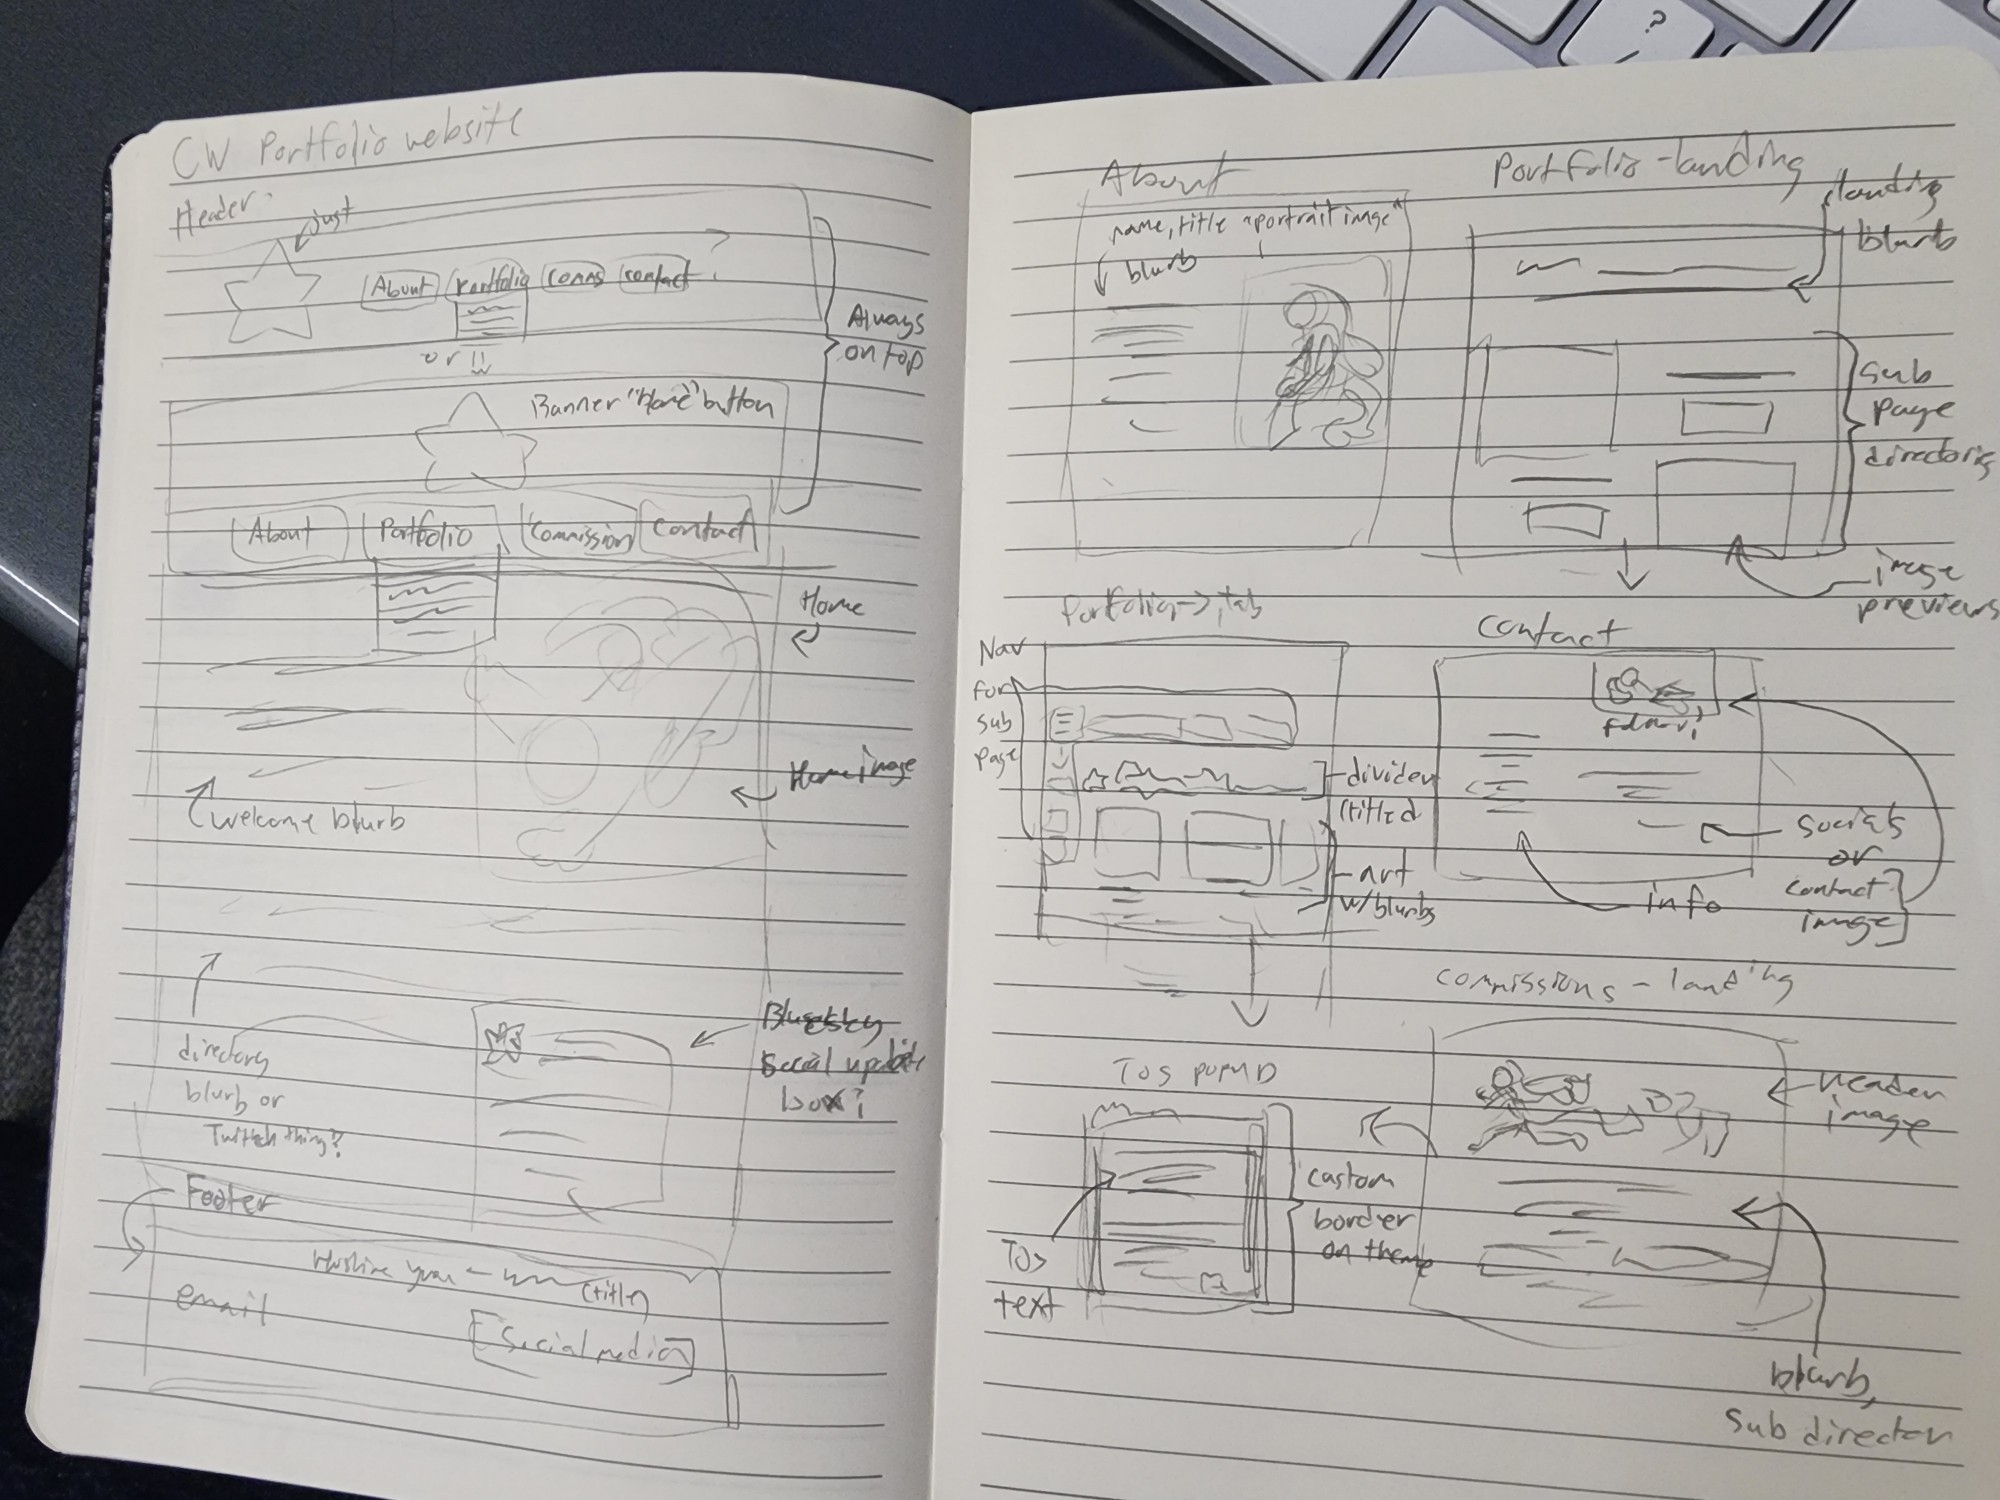 CW Portfolio website
Header:
just
About Portfolio Comms contact ?
or
Always
on top
Banner "Home" button
About Portfolio Commission Contact
Home
Home image
welcome blurb
directory
blurb or
Twitch thing?
Bluesky
Social update
box?
Footer
(title)
email
[Social media]
About
name, title "portrait image"
blurb
Portfolio - landing
landing
blurb
sub
page
directories
image
previews
Portfolio -> tab
Nav
for
sub
page
divider
(titled
art
w/blurbs
Contact
socials
or
contact
image
info
Commissions - landing
header
image
blurb,
Sub director
TOS POPUP
custom
border
on theme
TOS
text